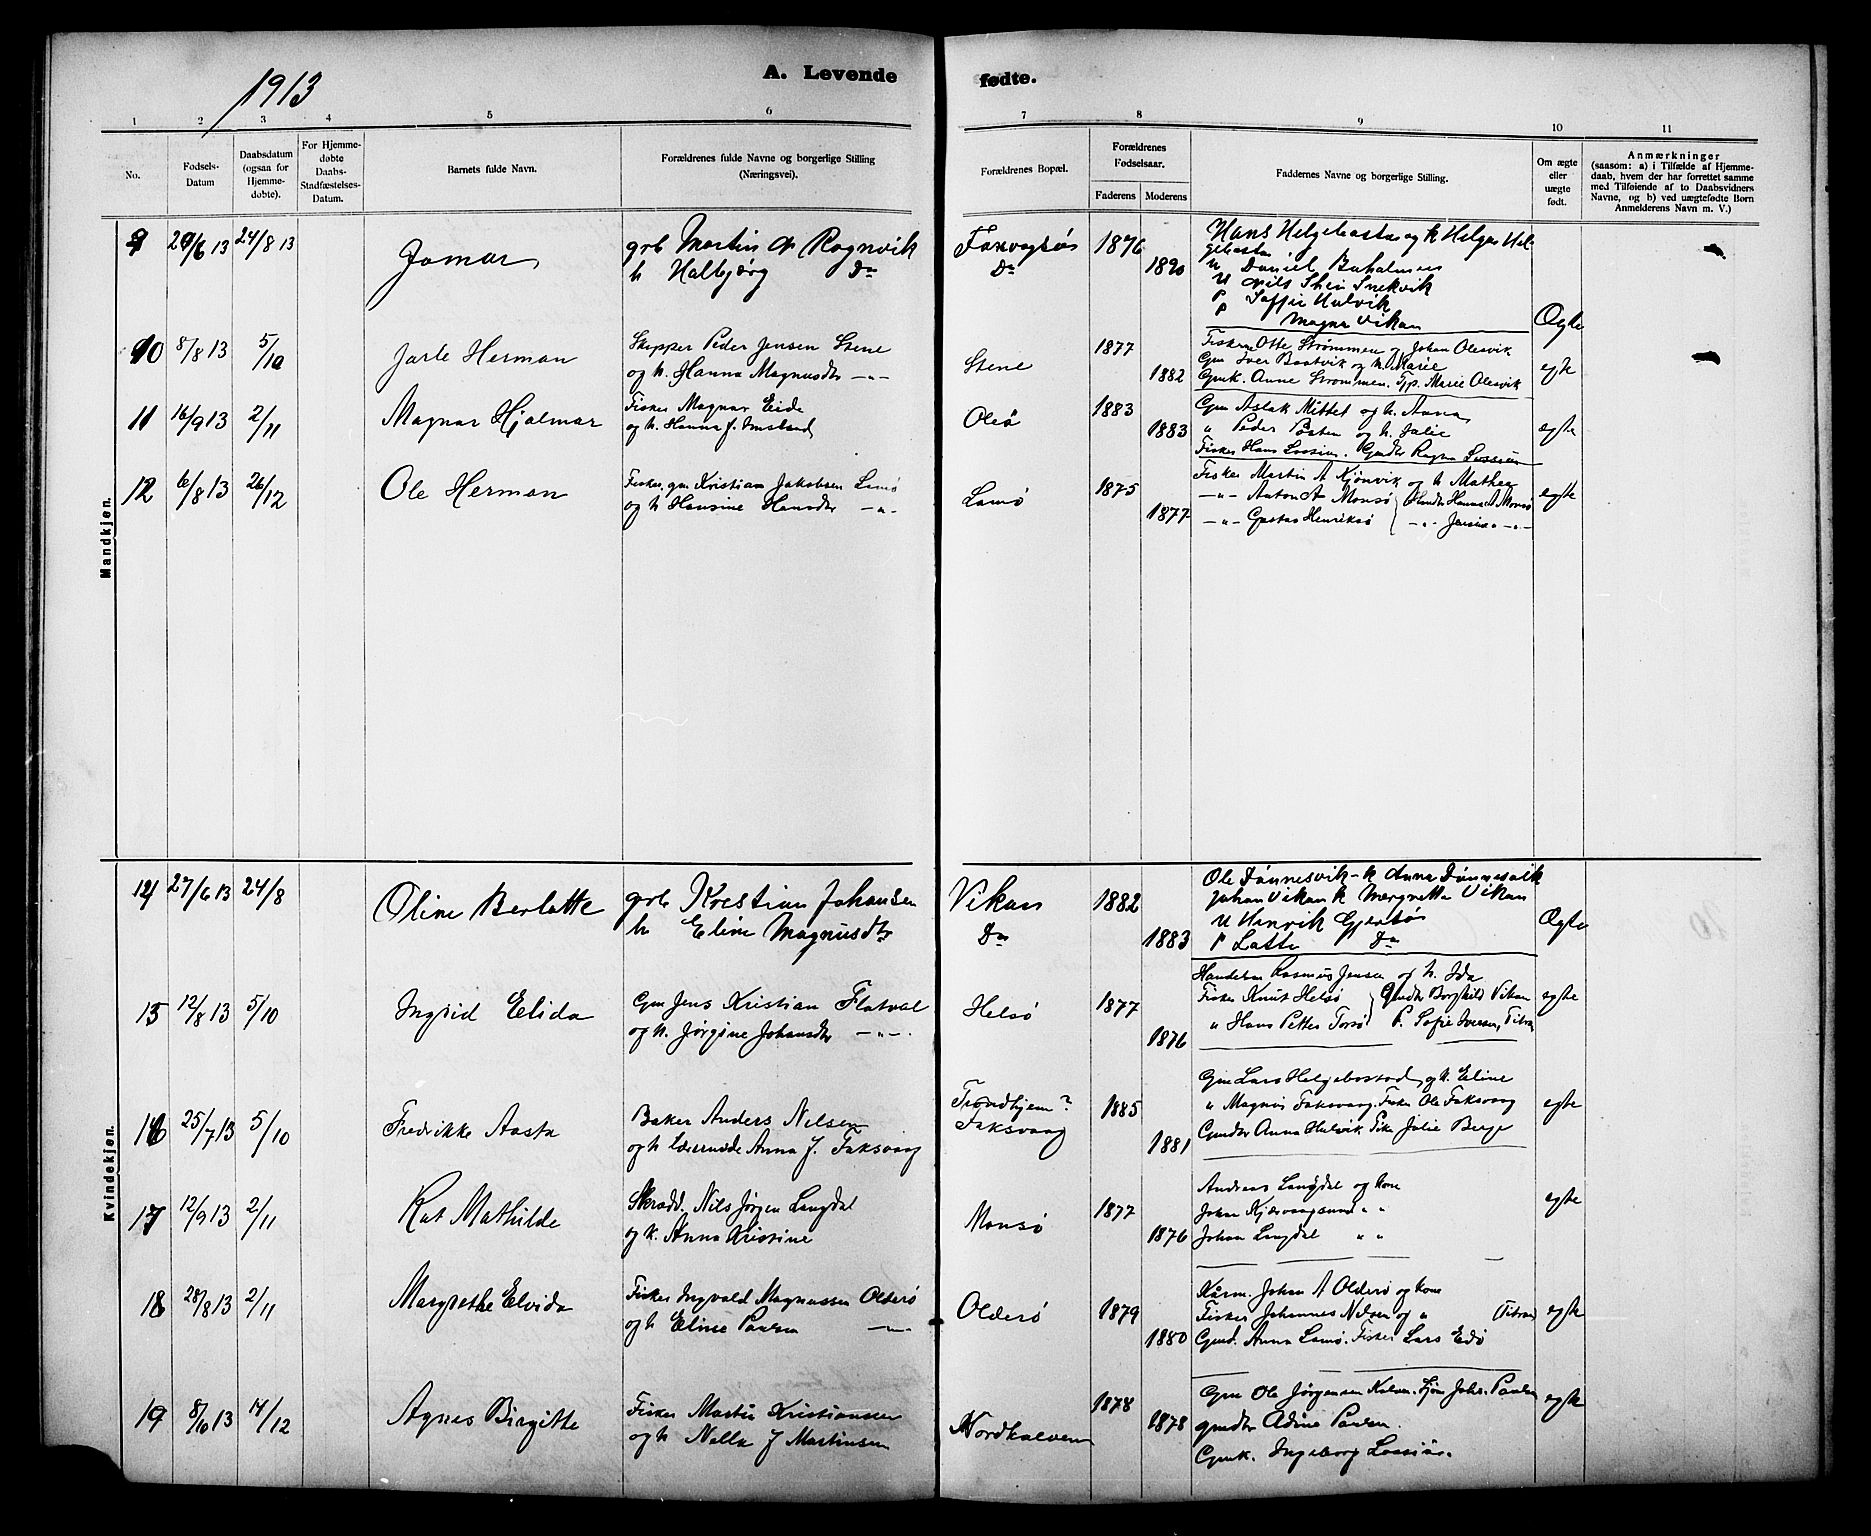 1913
A. Levende fødte.
1 2 3 4 5 6 7 8 9 10 11
No.
Fødsels-Datum
Daabsdatum (ogsaa for Hjemme-døbte).
For Hjemme-døbte Daabs-Stadfæstelses-Datum.
Barnets fulde Navn.
Forældrenes fulde Navne og borgerlige Stilling (Næringsvei).
Forældrenes Bopæl.
Forældrenes Fødselsaar.
Faderens Moderens
Faddernes Navne og borgerlige Stilling.
Om ægte eller uægte født.
Anmærkninger
(saasom: a) i Tilfælde af Hjemme-
daab, hvem der har forrettet samme
med Tilføiende af to Daabsvidners
Navne, og b) ved uægtefødte Børn
Anmelderens Navn m. V.)
Mandkjøn.
9 29/6 13 24/8 13 Jomar grb Martin Rognvik 1876 Hans Helgebostad og k Helga Hel-
gebostad
h Halbjørg Do Do 1890 U Daniel
U Nils Snekvik
P Hulvik
P Magna Vikan Ægte
10 8/8 13 5/10 Jarle Herman Skipper Peder Jensen Stene Stene 1877 Fiskerne Otte Strømmen og Johan Olesvik
og h. Hanna Magnusdtr -"- 1882 Gm Iver Bastvik og h. Marie egte
Gmk. Anne Strømmen. Tjp. Marie Olesvik
11 16/9 13 2/11 Magnar Hjalmar Fisker Magnar Eide Olsø 1883 Gm Aslak Mittet og h. Anna
og h. Hanna J. 1883 " Peder Bosten og h. Julie egte
Fisker Hans Lossius. Gmdtr Ragna Lossius
12 6/8 13 26/12 Ole Herman Fisker, gm Kristian Jakobsen Lamø Lamø 1875 Fisker Martin A Kjønvik og h Mathea
og h Hansine Hansdtr -"- -"- Anton A Monsø Gmdtr Hanna A Monsø egte
1877 -"- Gustav Henriksø -"- Jensine -"-
Kvindekjøn.
14 27/6 13 24/8 Oline Berlotte grb Kristian Johansen Vikan 1882 Ole Dønnesvik - k Anna Dønnesvik
Johan Vikan k Margretta Vikan
h Eline Magnusdtr Do 1883 U Henrik Gjersø Ægte
P Lotte Do
15 12/8 13 5/10 Ingrid Elida Gm Jens Kristian Flatval Helsø 1877 Handelsm Rasmus Jensen og h. Ida
Fisker Knut Helsø Gmdtr Borghild Vikan egte
og h. Jørgine Johansdtr -"- 1876 " Hans Petter Torsø P. Sofie Iversen, Titran
16 25/7 13 5/10 Fredrikke Aasta Baker Anders Nilsen Trondhjem? 1885 Gm Lars Helgebostad og h. Eline
Faksvaag " Magnus Faksvaag. Fisker Ole Faksvaag egte
og h Lærerinde Anna J. Faksvaag 1881 Gmdtr Anna Hulvik Pike Julie Berge
17 12/9 13 2/11 Rut Mathilde Skrædd. Nils Jørgen Langdal Monsø 1877 Andreas Langdal og kone egte
Johan Kjærvaagsund " "
og h. Anna Kristine 1876 Johan Langdal " "
18 28/8 13 2/11 Margrethe Elvida Fisker Ingvald Magnussen Olderø Olderø 1879 Johan A Olderø og kone
Fisker Johannes Nilsen og " (Titran) egte
og h Eline Paulsn -"- 1880 Gmd. Anna Lamø. Fisker Lars Edø
19 8/10 13 14/12 Agnes Birgitte Fisker Martin Kristiansen Nordkalven 1878 Gm Ole Jørgensen Kalven. Johs. Paulsen egte
og h Nella J Martinsen 1878 gmdtr Adine Paulsen
Gmk. Ingeborg Lossius.